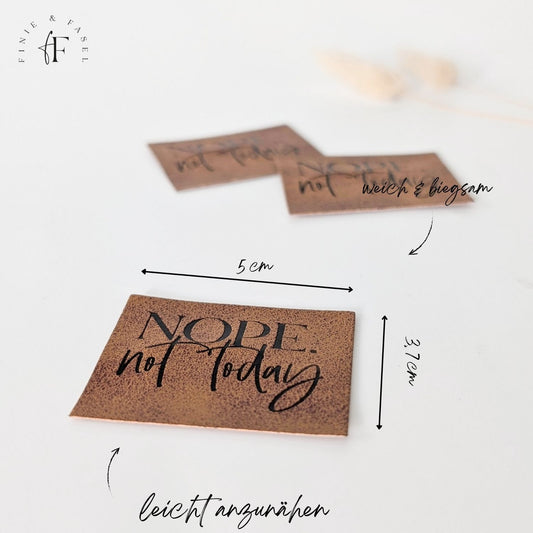 FINIE & FASEL
fF
not today
NOPE.
not today
weich & biegsam
5 cm
NOPE.
not today
3,7 cm
leicht anzunähen